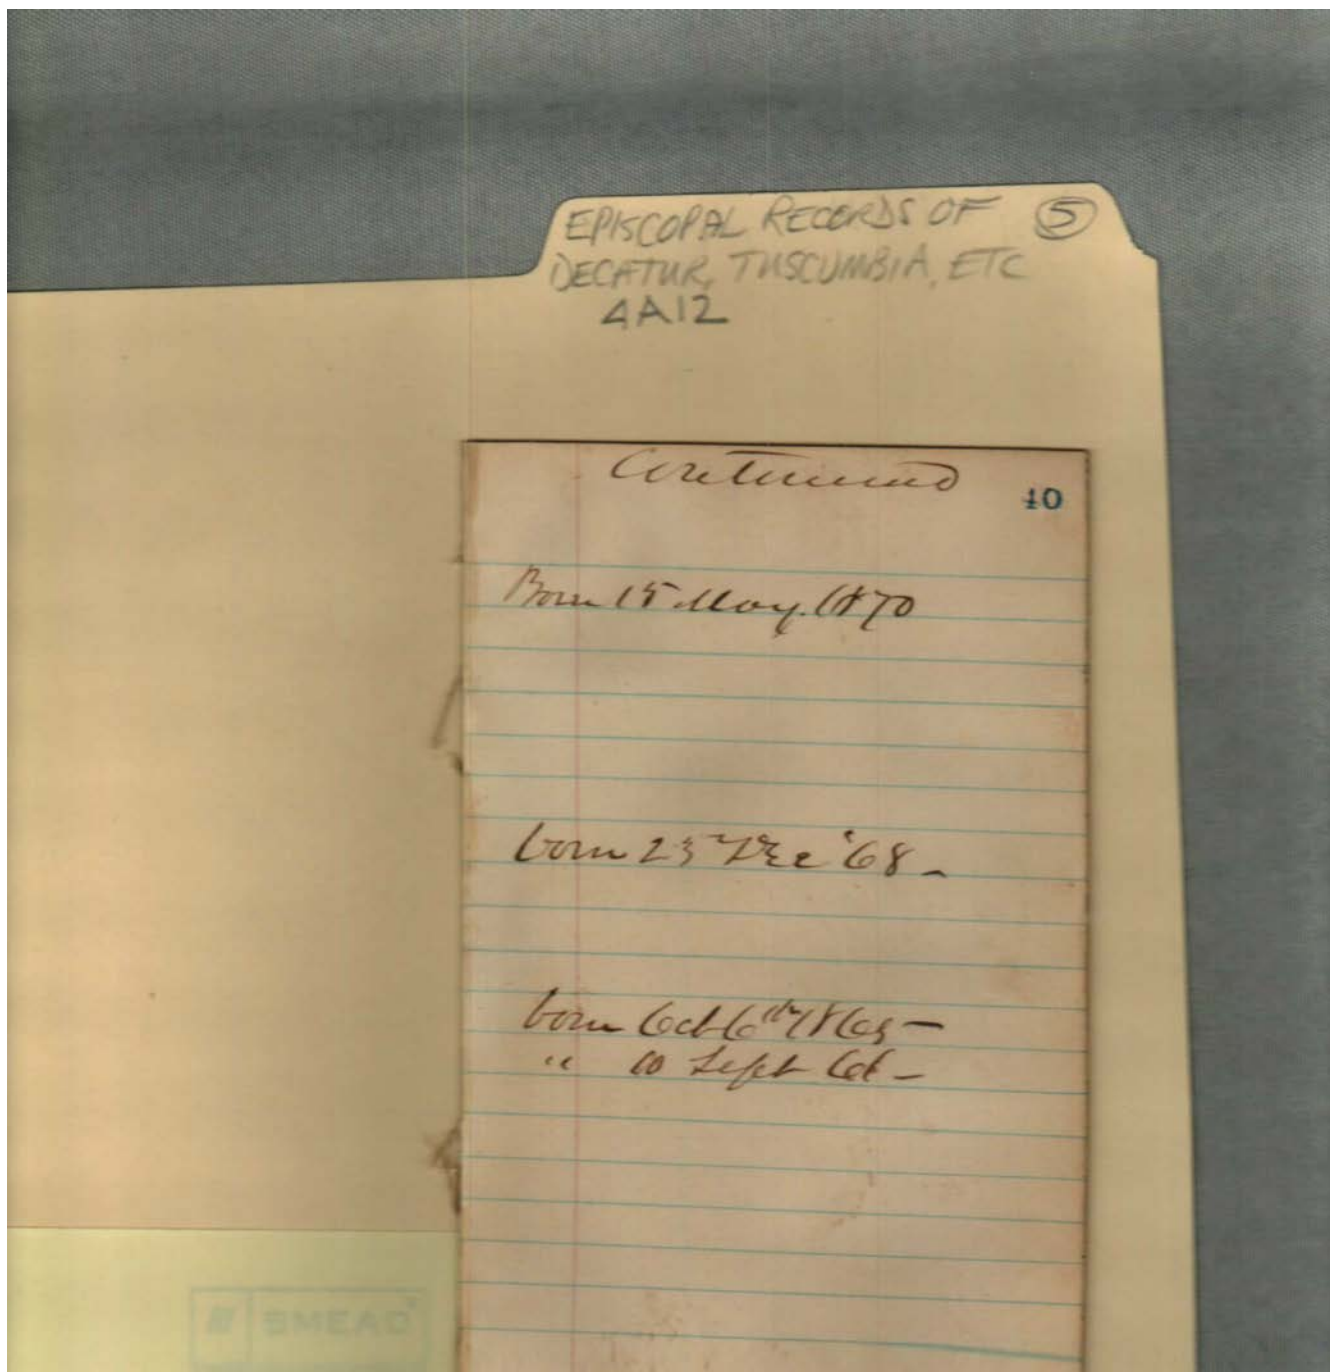 EPISCOPAL RECORDS OF 5
DECATUR, TUSCUMBIA, ETC
4A12
Continued
40
Born 15 May. 1870
born 23 Dec '68 -
born Oct 6th 1865 -
" 10 Sept 66 -
SMEAD